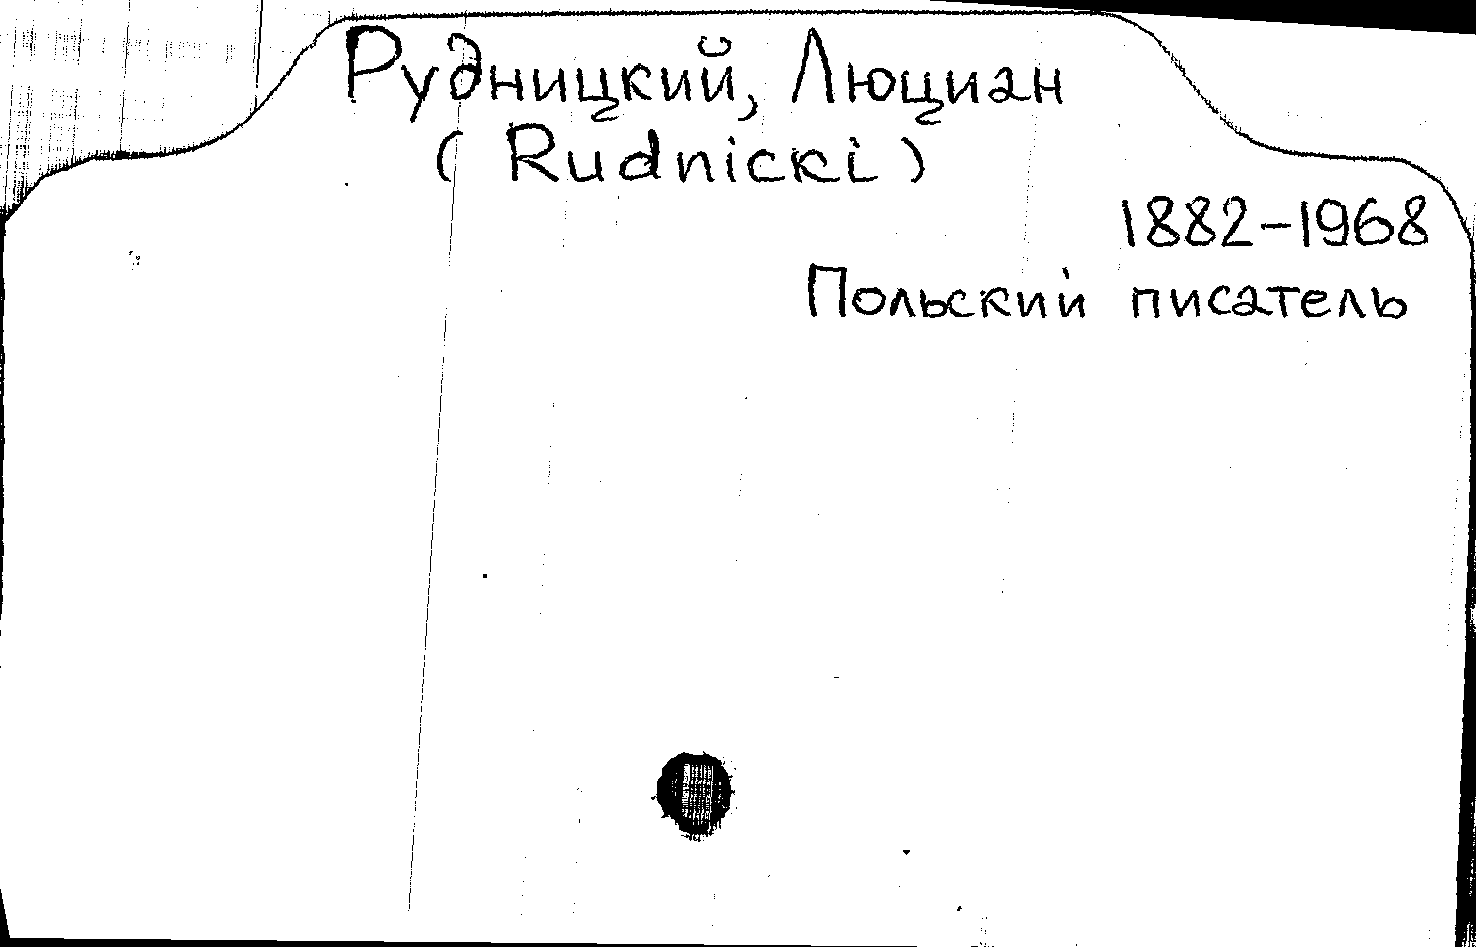 Рудницкий, Люциан
( Rudnicki )
1882-1968
Польский писатель